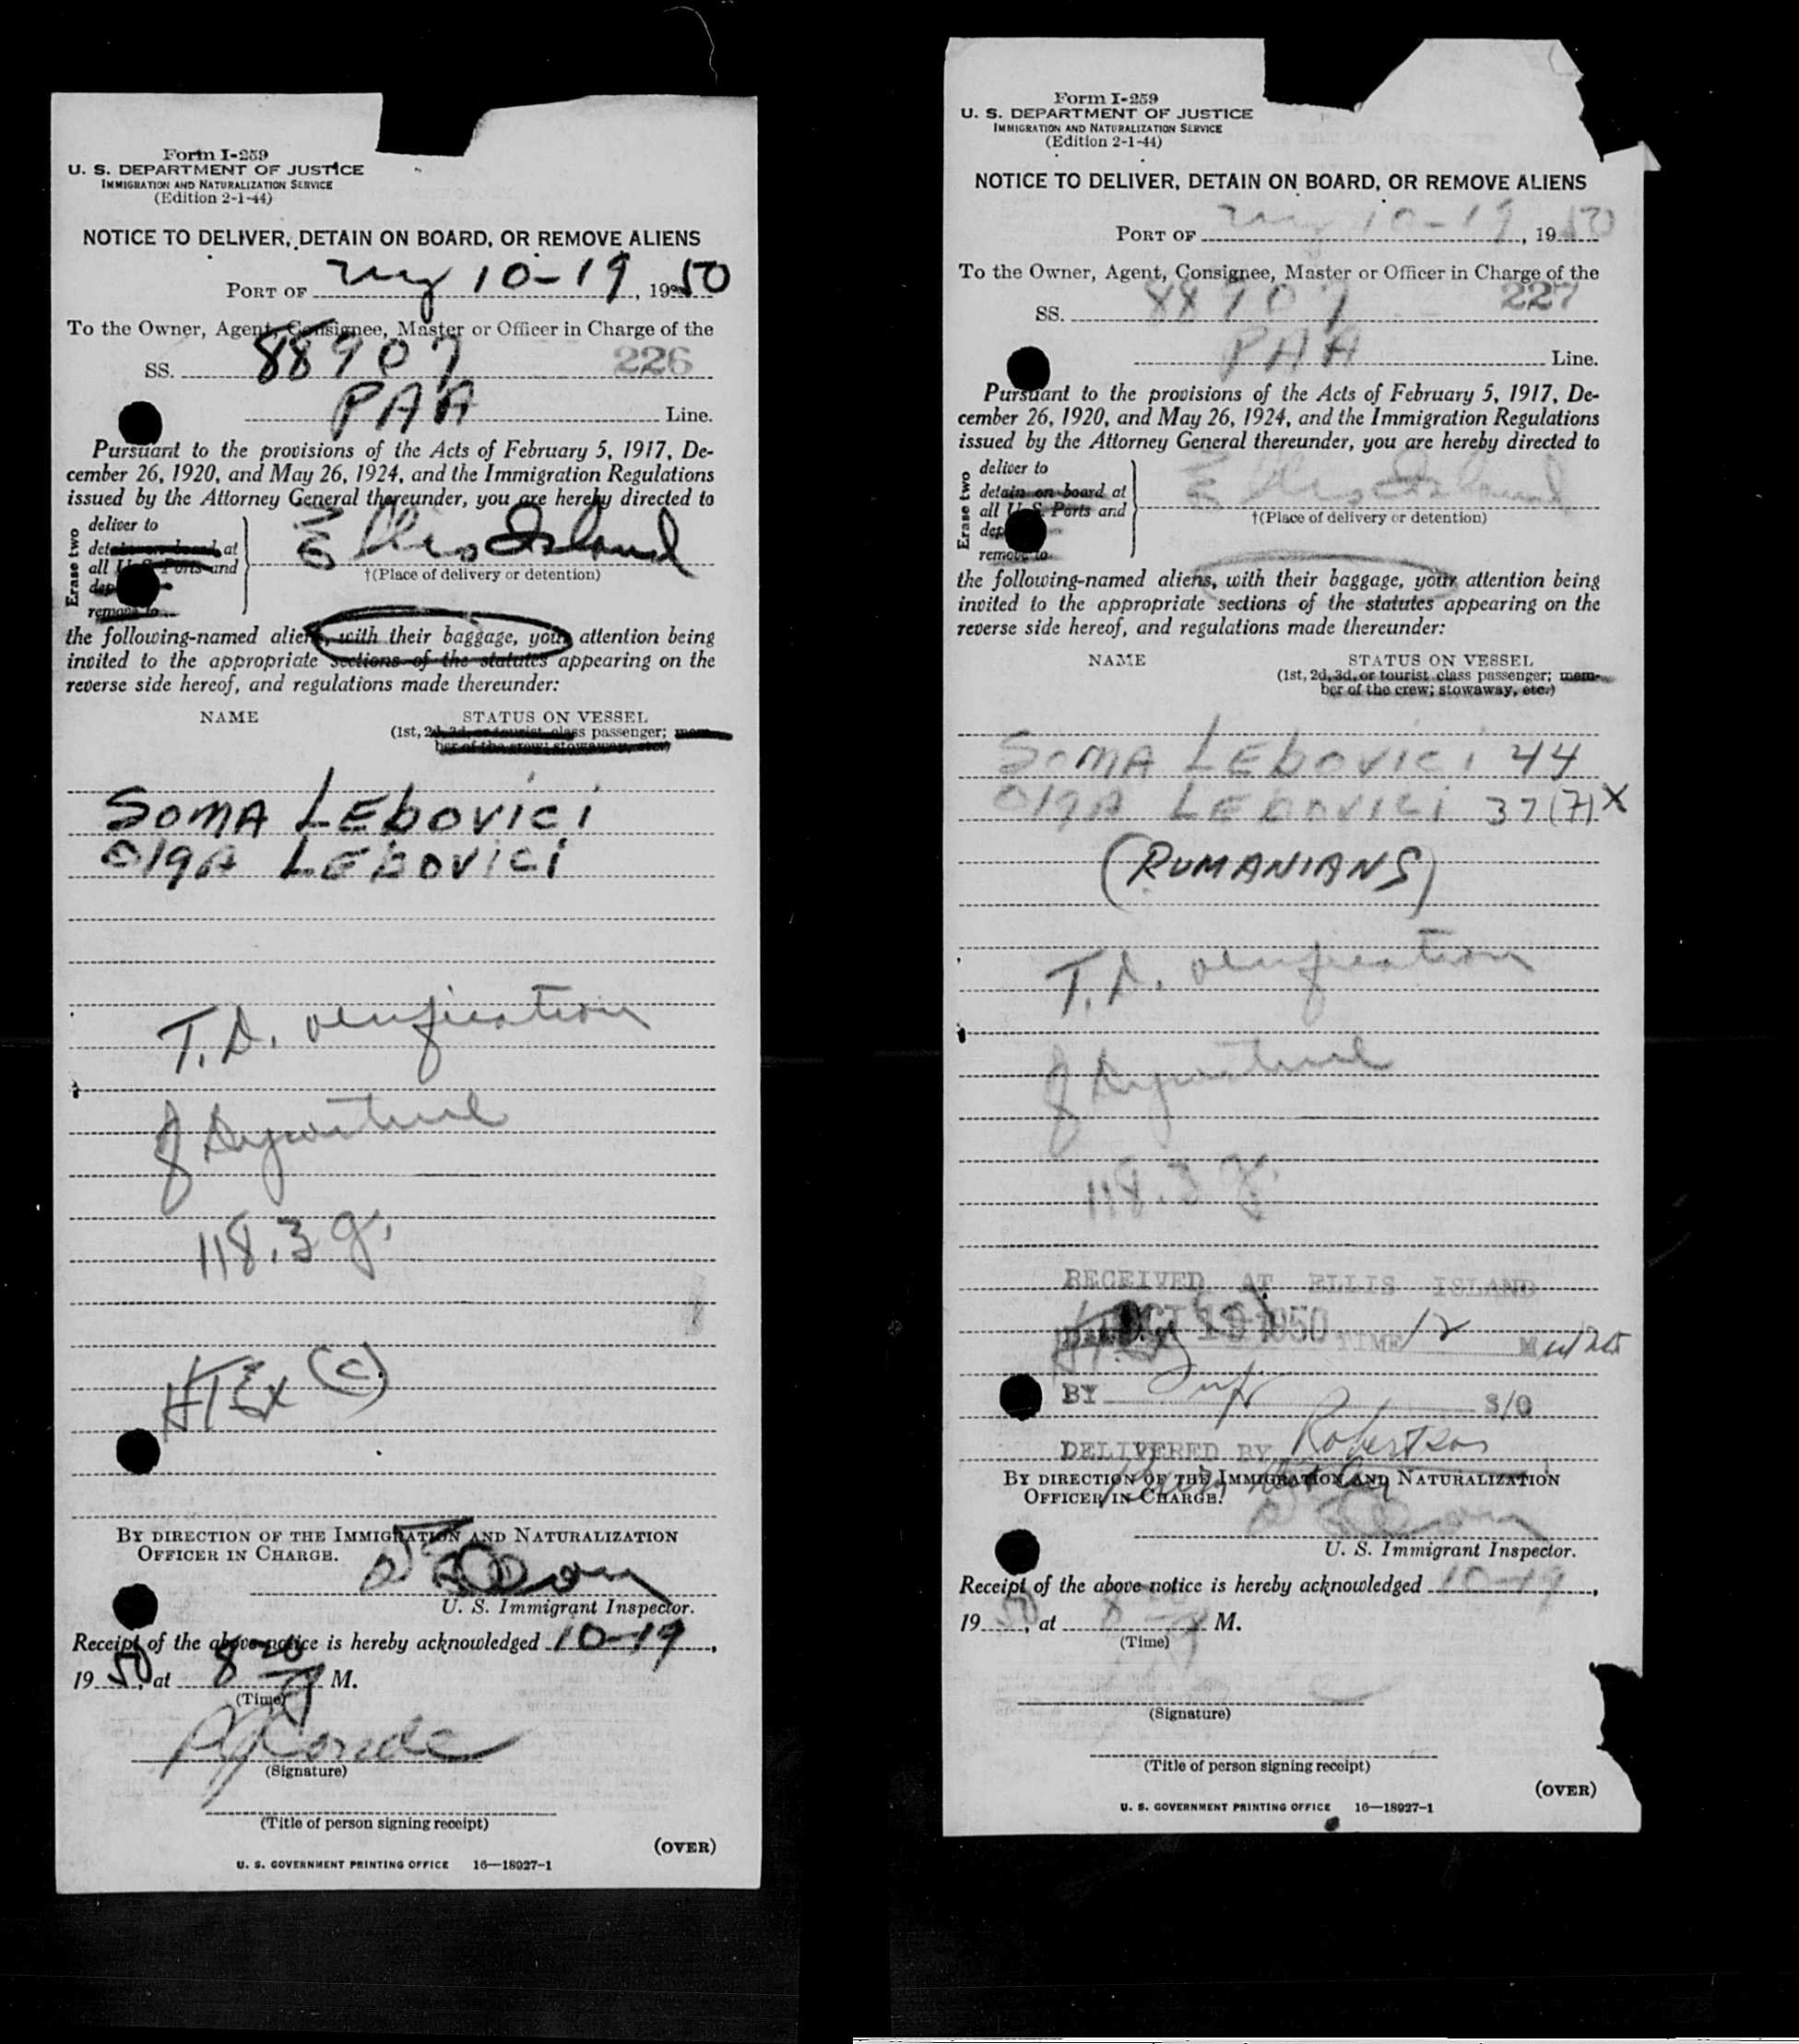 Form I-259
U. S. DEPARTMENT OF JUSTICE
IMMIGRATION AND NATURALIZATION SERVICE
(Edition 2-1-44)
NOTICE TO DELIVER, DETAIN ON BOARD, OR REMOVE ALIENS
PORT OF NY 10-19, 1950
To the Owner, Agent, Consignee, Master or Officer in Charge of the
SS. 88907 226
PAA Line.
Pursuant to the provisions of the Acts of February 5, 1917, De-
cember 26, 1920, and May 26, 1924, and the Immigration Regulations
issued by the Attorney General thereunder, you are hereby directed to
Erase two
deliver to
detain on board at
all U. S. Ports and
dep
remove to
Ellis Island
†(Place of delivery or detention)
the following-named aliens, with their baggage, your attention being
invited to the appropriate sections of the statutes appearing on the
reverse side hereof, and regulations made thereunder:
NAME STATUS ON VESSEL
(1st, 2d, 3d, or tourist class passenger; mem-
ber of the crew; stowaway, etc.)
SOMA LEbovici
OlgA LEbovici
T.D. verification
of Departure
118.3 g.
(c)
BY DIRECTION OF THE IMMIGRATION AND NATURALIZATION
OFFICER IN CHARGE.
U. S. Immigrant Inspector.
Receipt of the above notice is hereby acknowledged 10-19,
1950, at 8 20 M.
(Time)
(Signature)
(Title of person signing receipt)
(OVER)
U. S. GOVERNMENT PRINTING OFFICE 16—18927-1
Form I-259
U. S. DEPARTMENT OF JUSTICE
IMMIGRATION AND NATURALIZATION SERVICE
(Edition 2-1-44)
NOTICE TO DELIVER, DETAIN ON BOARD, OR REMOVE ALIENS
PORT OF NY 10-19, 1950
To the Owner, Agent, Consignee, Master or Officer in Charge of the
SS. 88907 227
PAA Line.
Pursuant to the provisions of the Acts of February 5, 1917, De-
cember 26, 1920, and May 26, 1924, and the Immigration Regulations
issued by the Attorney General thereunder, you are hereby directed to
Erase two
deliver to
detain on board at
all U. S. Ports and
dep
remove to
Ellis Island
†(Place of delivery or detention)
the following-named aliens, with their baggage, your attention being
invited to the appropriate sections of the statutes appearing on the
reverse side hereof, and regulations made thereunder:
NAME STATUS ON VESSEL
(1st, 2d, 3d, or tourist class passenger; mem-
ber of the crew; stowaway, etc.)
SOMA LEbovici 44
OlgA LEbovici 37 (7) X
(RUMANIANS)
T.D. verification
of Departure
118.3 g.
RECEIVED AT ELLIS ISLAND
OCT 19 1950 TIME 12 M
BY S/O
DELIVERED BY Robertson
BY DIRECTION OF THE IMMIGRATION AND NATURALIZATION
OFFICER IN CHARGE.
U. S. Immigrant Inspector.
Receipt of the above notice is hereby acknowledged 10-19,
1950, at 8 20 M.
(Time)
(Signature)
(Title of person signing receipt)
(OVER)
U. S. GOVERNMENT PRINTING OFFICE 16—18927-1